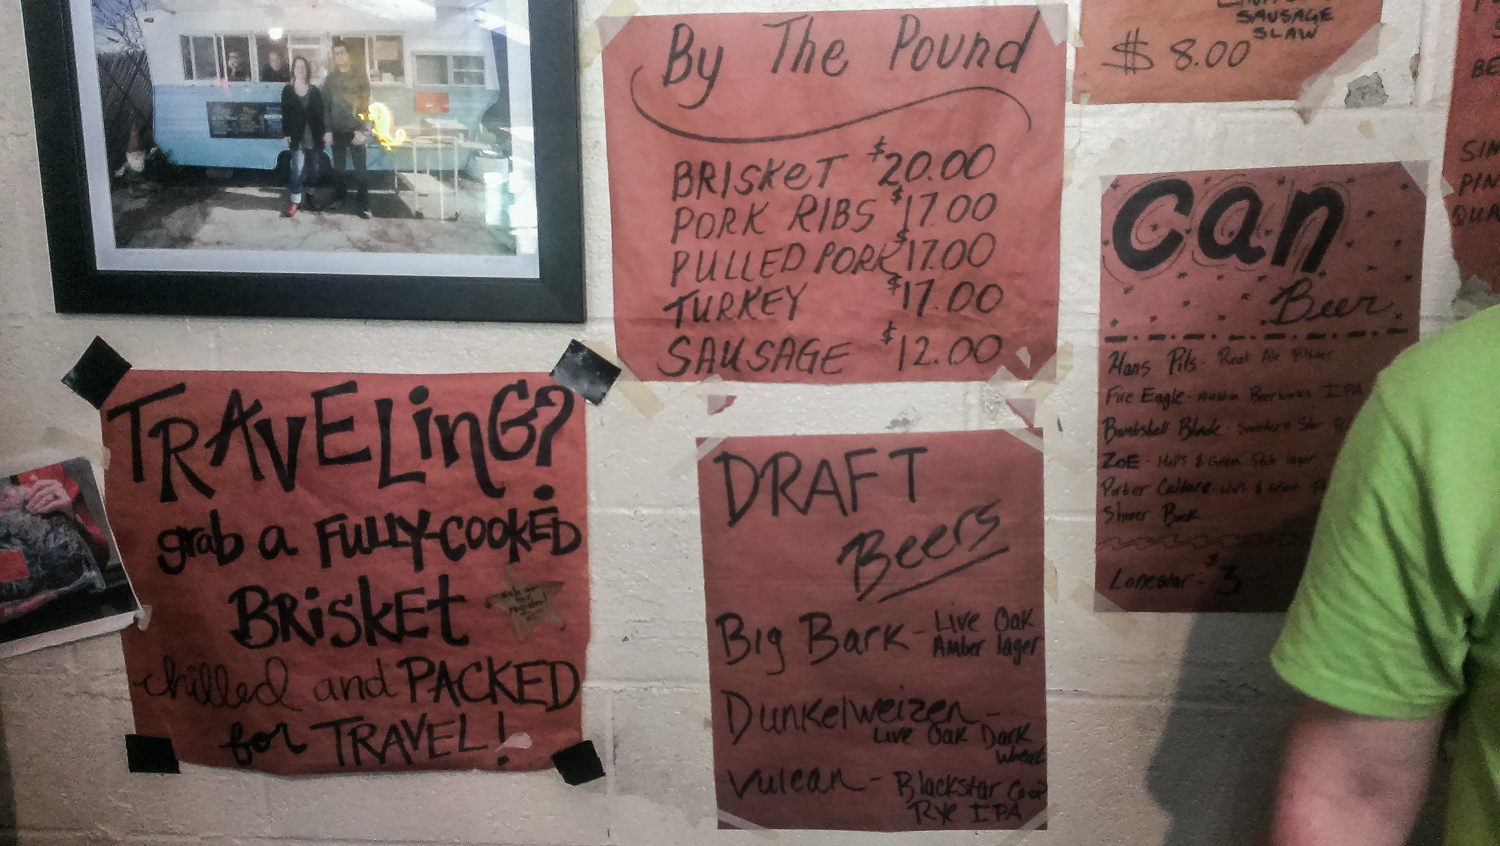 By The Pound
BRISKET $20.00
PORK RIBS $17.00
PULLED PORK $17.00
TURKEY $17.00
SAUSAGE $12.00
SAUSAGE
SLAW
$8.00
BE
SIM
PIN
QUA
Can
Beer
Hans Pils - Real Ale Pilsner
Fire Eagle - Austin Beerworks IPA
Bombshell Blonde - Southern Star
ZOE - Hops & Grain Pale lager
Porter Culture - Hops & Grain
Shiner Bock
Lonestar - $3
TRAVELinG?
grab a FULLY-COOKED
BRisKEt
ask at
the
register!
chilled and PACKED
for TRAVEL!
DRAFT
Beers
Big Bark - Live Oak
Amber lager
Dunkelweizen -
Live Oak Dark
Wheat
Vulcan - Blackstar Co-op
Rye IPA